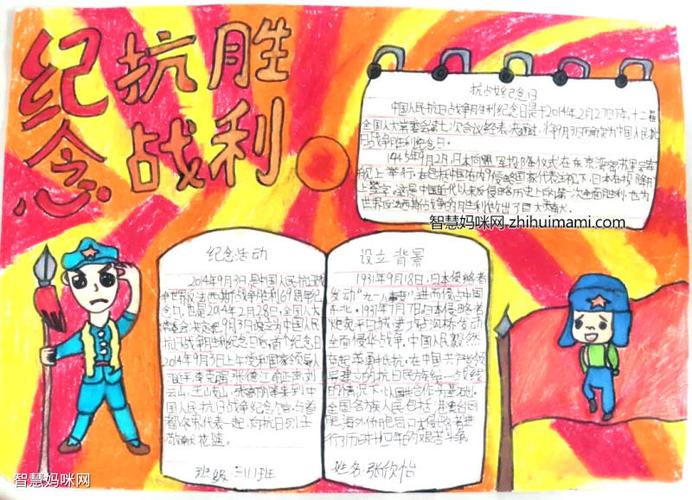 纪念
抗战
胜利
抗战纪念日
中国人民抗日战争胜利纪念日是于2014年2月27日下午,十二届
全国人大常委会第七次会议经表决通过,将9月3日确定为中国人民抗
日战争胜利纪念日。
1945年9月2日,日本向盟军投降仪式在东京湾密苏里号军
舰上举行。在包括中国在内9个
上签字。这是中国近代以来反侵略历史上的第一次全面胜利,也为
世界反法西斯战争的胜利做出了巨大贡献。
智慧妈咪网 zhihuimami.com
纪念活动
2014年9月3日是中国人民抗日战
争暨世界反法西斯战争胜利69周年纪
念日,也是2014年2月28日,全国人大
常委会决定把9月3日确定为中国人民
抗日战争胜利纪念日后,首个纪念日
2014年9月3日上午党和国家领导人
习近平 李克强 张德江 俞正声 刘
云山 王岐山 张高丽等来到中
国人民抗日战争纪念馆,与首都
各界代表一起,向抗日烈士
敬献花篮。
班级:三(1)班
设立背景
1931年9月18日,日本侵略者
发动"九一八事变",进而侵占中国
东北。1937年7月7日,日本侵略者
炮轰宛平城,进攻卢沟桥,发动
全面侵华战争,中国人民毅然
奋起,英勇抵抗。在中国共产党倡
导建立的抗日民族统一战线
的情况下,以国共合作为基础,
全国各族人民包括
胞、海外侨胞同日本侵略者进
行了历时十四年的艰苦斗争
姓名:张欣怡
智慧妈咪网